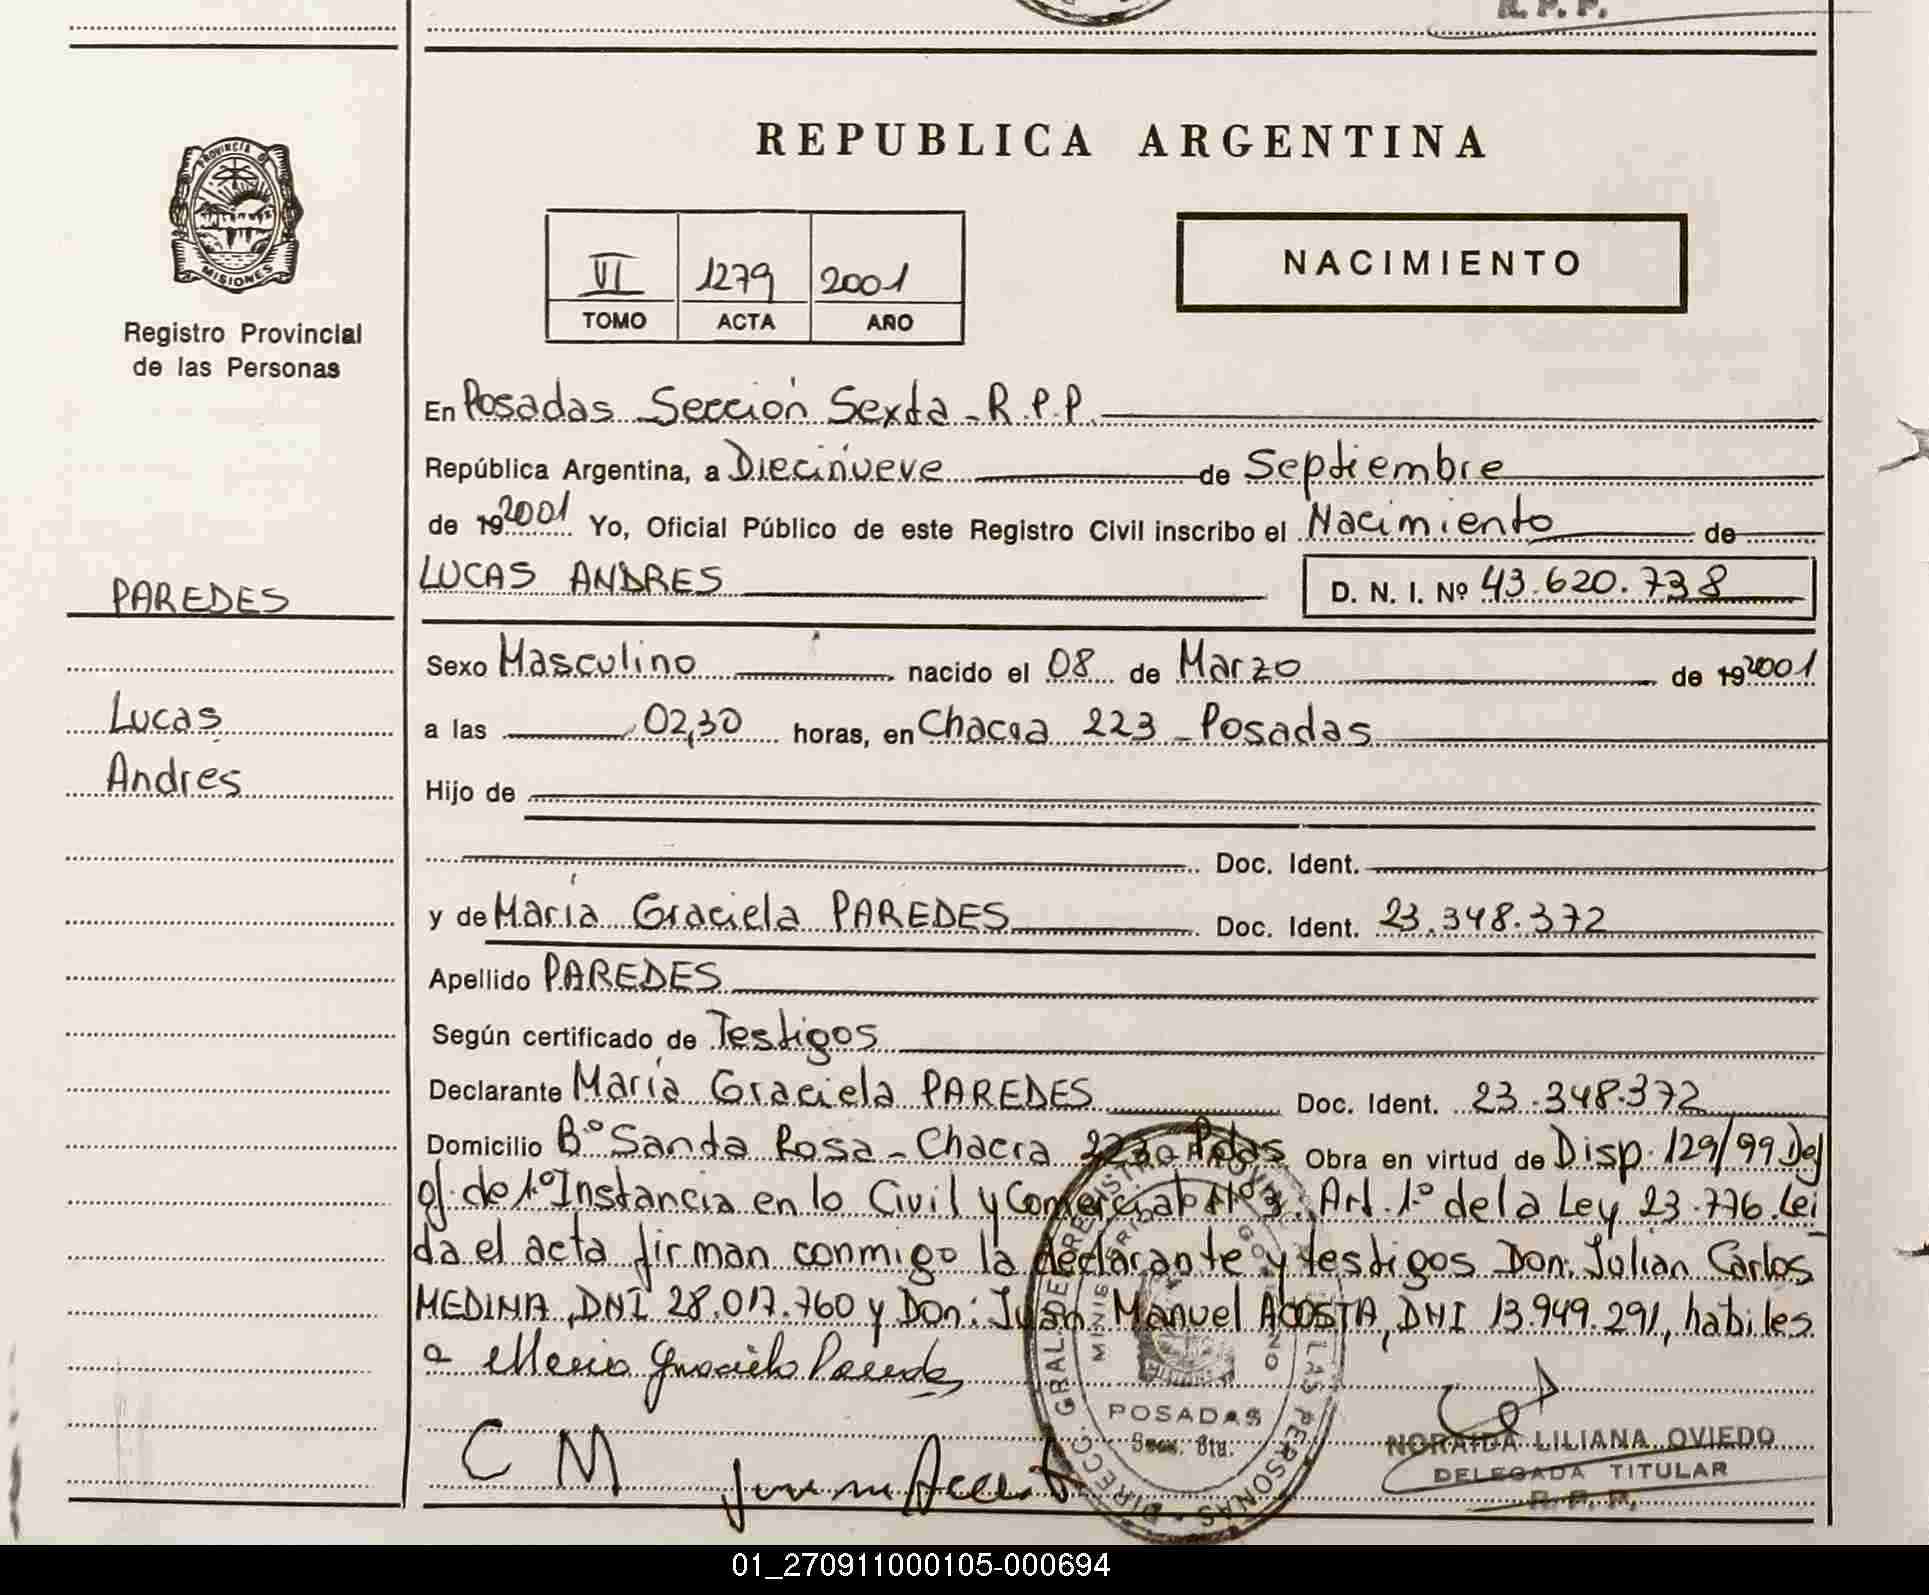 R. P. P.
PROVINCIA DE
MISIONES
Registro Provincial
de las Personas
PAREDES
Lucas
Andres
REPUBLICA ARGENTINA
VI 1279 2001
TOMO ACTA AÑO
NACIMIENTO
En Posadas Sección Sexta - R.P.P.
República Argentina, a Diecinueve de Septiembre
de 19 2001 Yo, Oficial Público de este Registro Civil inscribo el Nacimiento de
LUCAS ANDRES D. N. I. Nº 43.620.738
Sexo Masculino nacido el 08 de Marzo de 19 2001
a las 02,30 horas, en Chacra 223 - Posadas
Hijo de
Doc. Ident.
y de María Graciela PAREDES Doc. Ident. 23.348.372
Apellido PAREDES
Según certificado de Testigos
Declarante María Graciela PAREDES Doc. Ident. 23.348.372
Domicilio Bº Santa Rosa - Chacra Pdas Obra en virtud de Disp. 129/99 Del
de 1º Instancia en lo Civil y Comercial Nº 3. Art. 1º de la Ley 23.776. Lei
da el acta firman conmigo la declarante y testigos Don: Julian Carlos
MEDINA, DNI 28.017.760 y Don: Juan Manuel ACOSTA, DNI 13.949.291, habiles
Maria Graciela Paredes
C M
POSADAS
NORAIDA LILIANA OVIEDO
DELEGADA TITULAR
R. P. P.
01_270911000105-000694